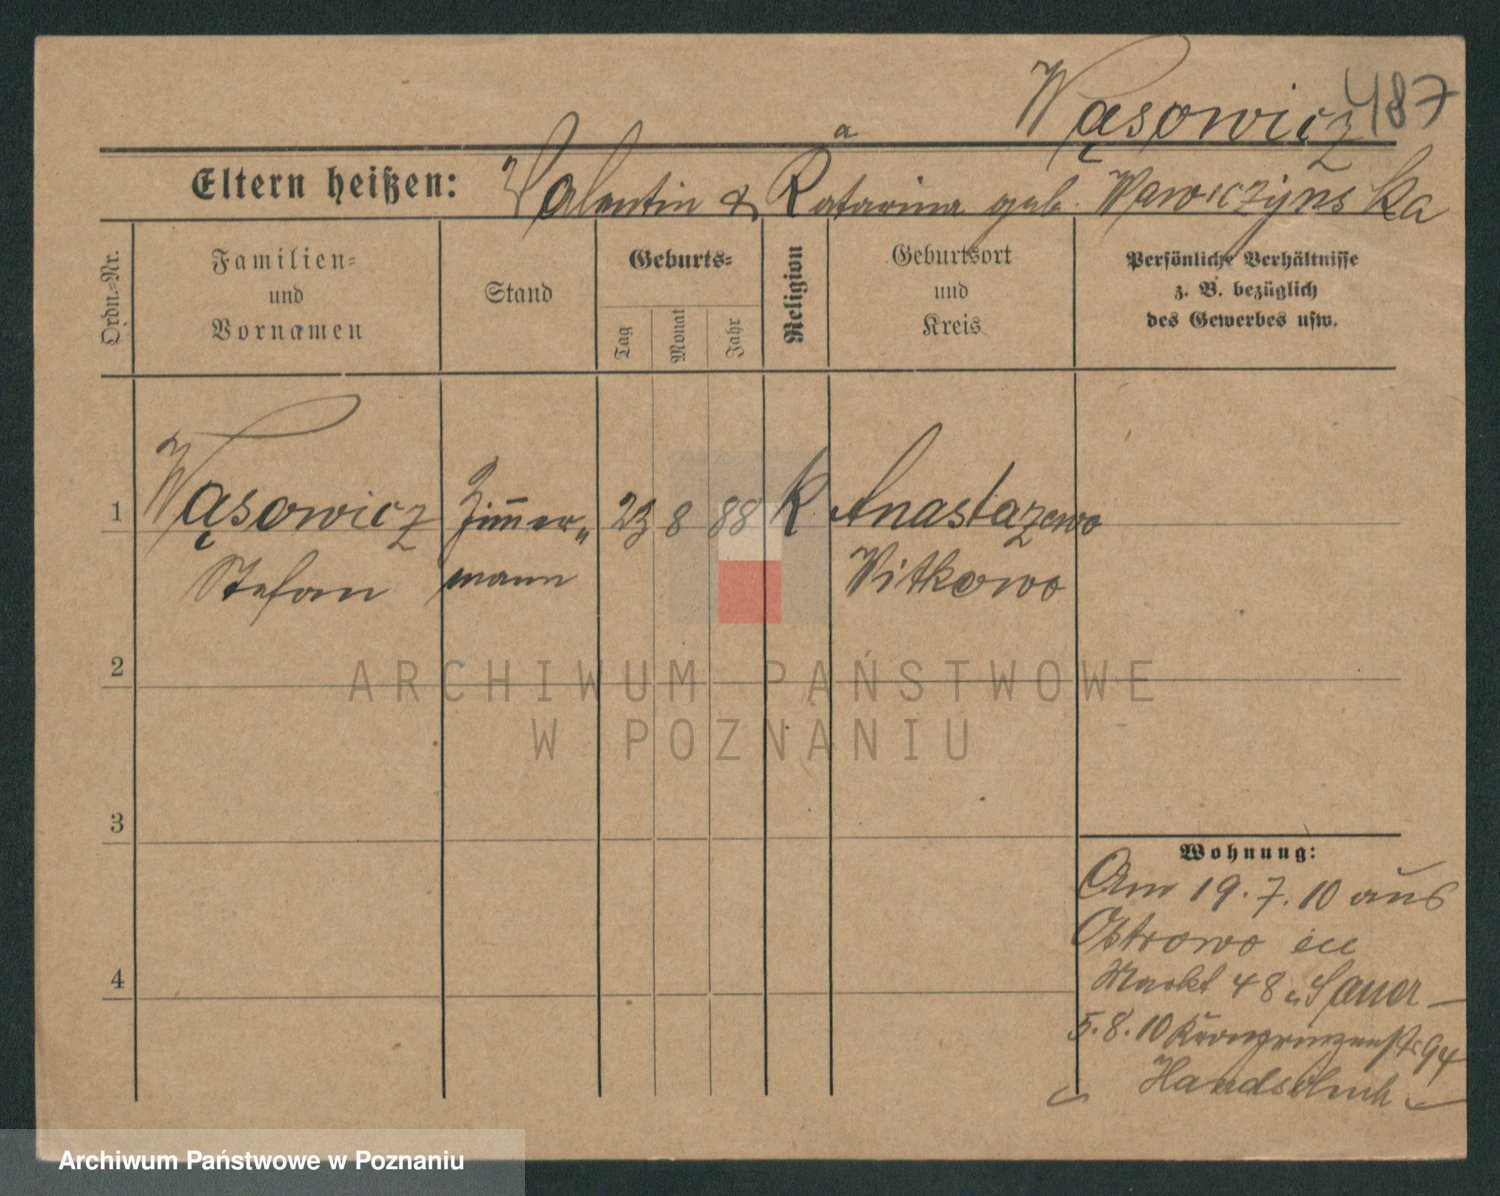 Wąsowicz 487
a
Eltern heißen: Valentin & Katarina geb. Wawrczyńska
Ordn.-Nr.
Familien-
und
Vornamen
Stand
Geburts-
Tag
Monat
Jahr
Religion
Geburtsort
und
Kreis
Persönliche Verhältnisse
z. B. bezüglich
des Gewerbes usw.
1 Wąsowicz Zimmer„ 23 8 88 K Anastazewo
Stefan mann Witkowo
2
3
4
Wohnung:
Am 19.7.10 aus
Ostrowo in
Markt 48
5.8.10 Kronprinzenstr 94
Handschuh
ARCHIWUM PAŃSTWOWE
W POZNANIU
Archiwum Państwowe w Poznaniu